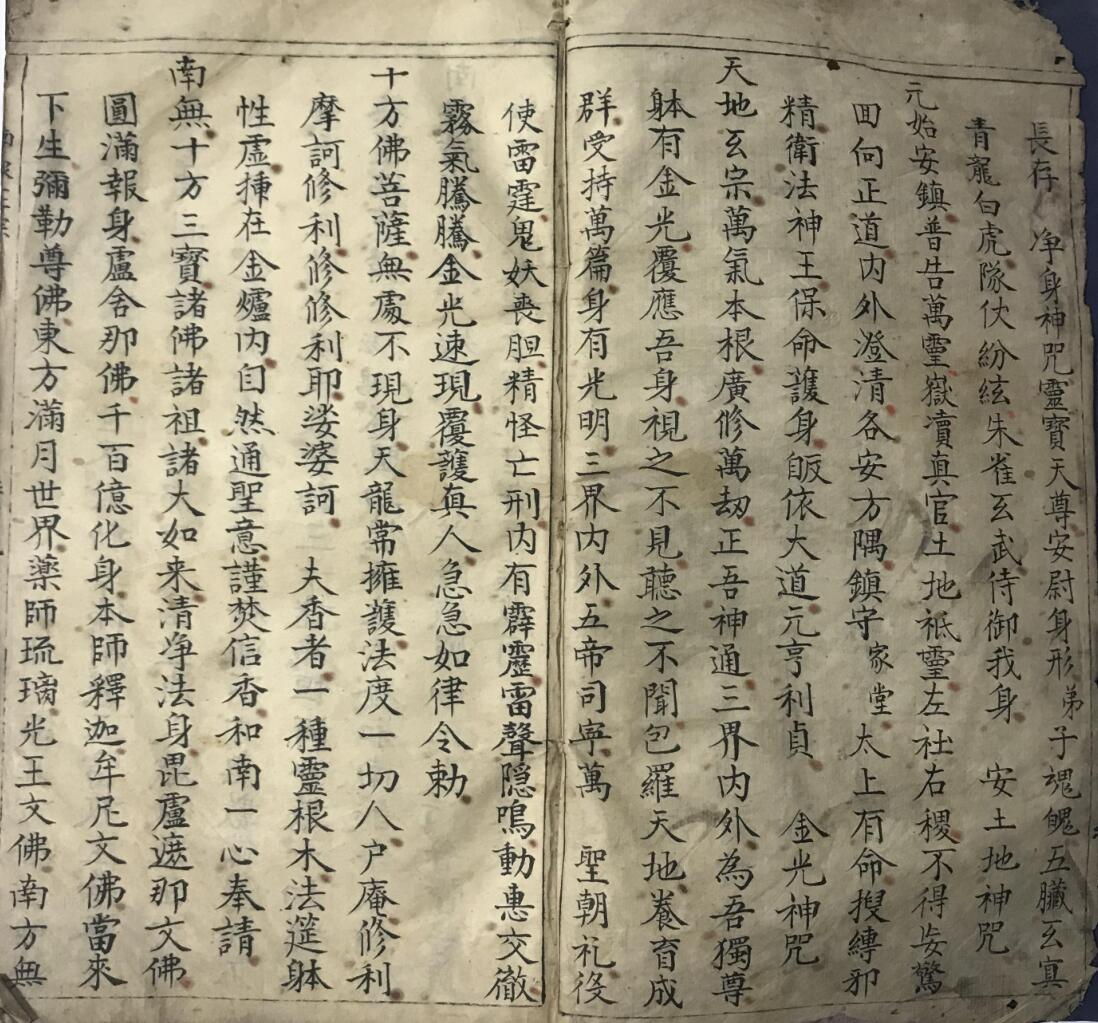 長存 净身神咒靈寶天尊安尉身形弟子魂魄五臟玄真
青龍白虎隊仗紛紜朱雀玄武侍御我身 安土地神咒
元始安鎮普告萬靈嶽瀆真官土地祗靈左社右稷不得妄驚
囬向正道内外澄清各安方隅鎮守家堂太上有命搜縛邪
精衛法神王保命護身皈依大道元亨利貞 金光神咒
天地玄宗萬氣本根廣修萬劫正吾神通三界内外為吾獨尊
躰有金光覆應吾身視之不見聽之不聞包羅天地養育成
群受持萬篇身有光明三界内外五帝司寕萬 聖朝礼役
使雷霆鬼妖喪胆精怪亡刑内有霹靂雷聲隐鳴動惠交徹
霧氣騰騰金光速現覆護真人急急如律令勅
十方佛菩薩無處不現身天龍常擁護法度一切人户庵修利
摩訶修利修修利耶娑婆訶 三 夫香者一種靈根木法筵躰
性虛揷在金爐内自然通聖意謹焚信香和南一心奉請
南無十方三寳諸佛諸祖諸大如来清净法身毘盧遮那文佛
圓滿報身盧舍那佛千百億化身本師釋迦牟尼文佛當來
下生彌勒尊佛東方滿月世界藥師琉璃光王文佛南方無